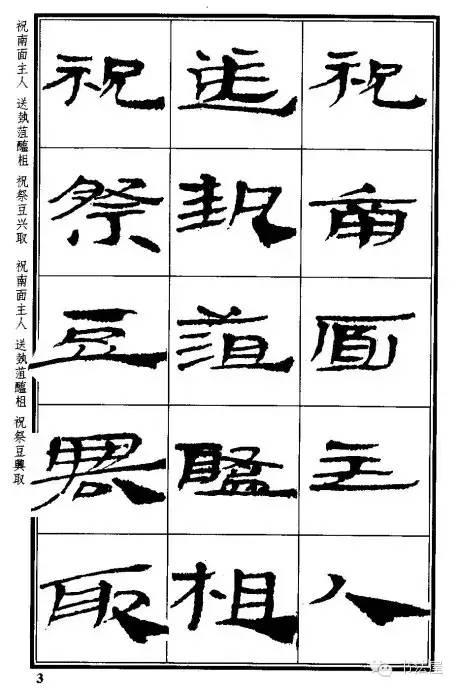 祝南面主人
送執菹醢相
祝祭豆興取
祝南面主人 送執菹醢柤 祝祭豆兴取
祝南面主人 送執菹醢柤 祝祭豆興取
3
书法屋